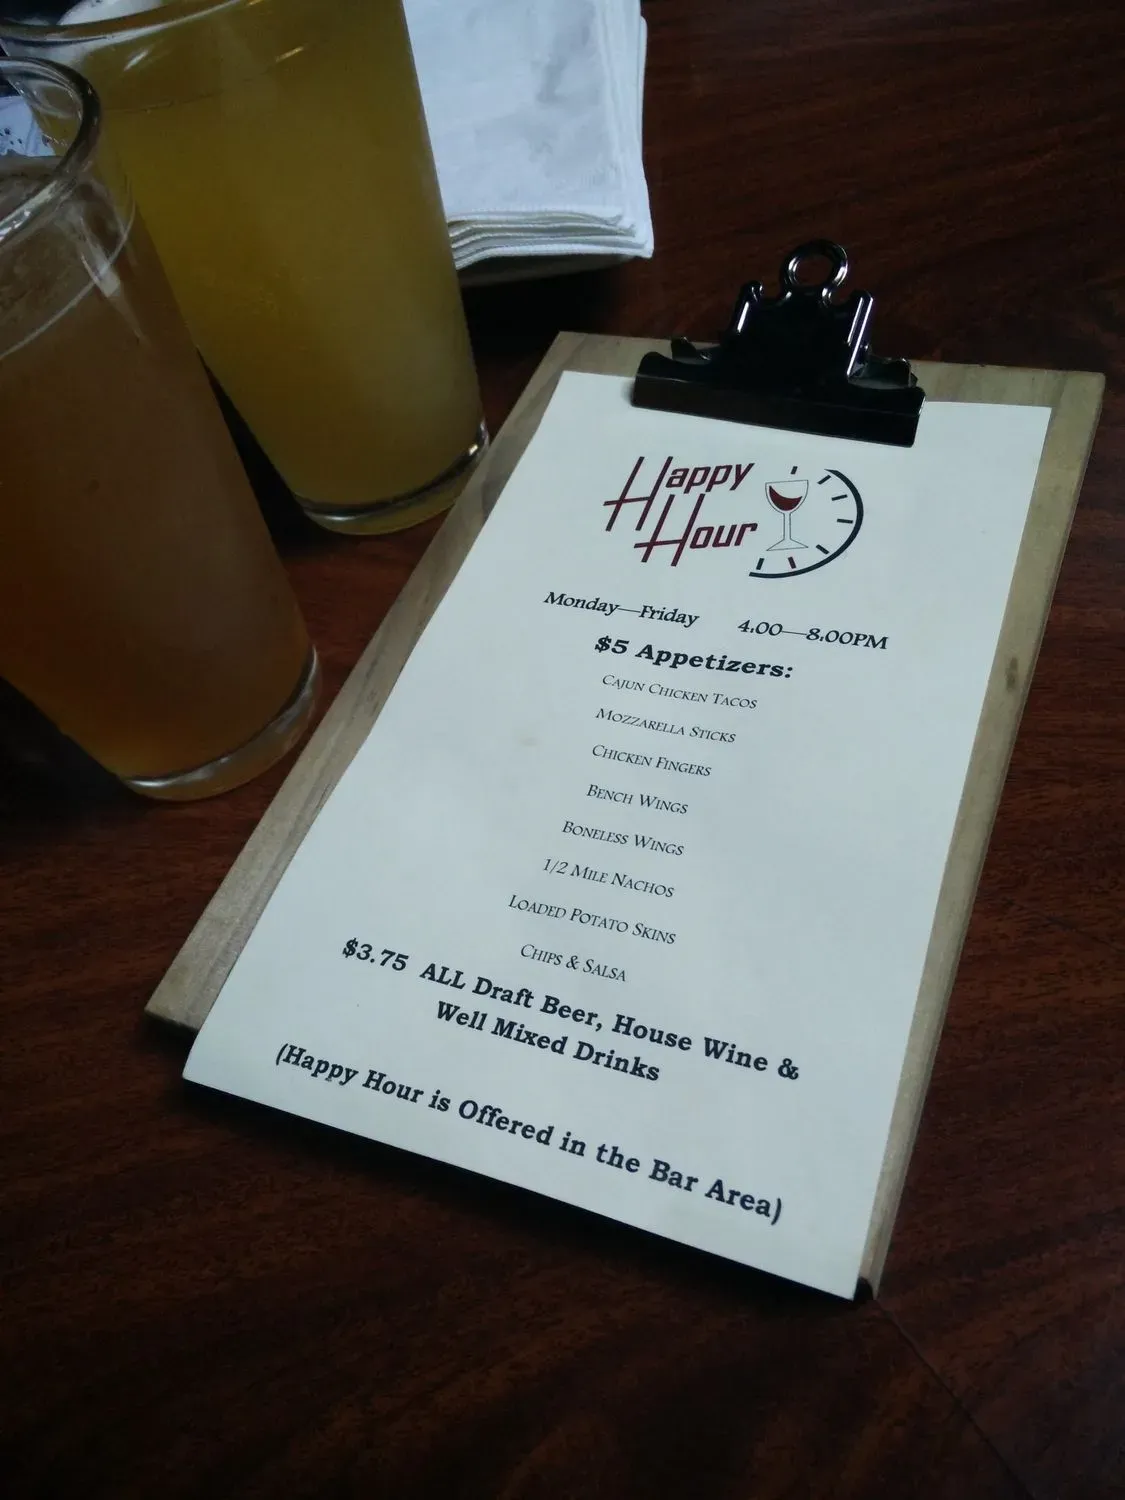 Happy
Hour
Monday—Friday 4:00—8:00PM
$5 Appetizers:
Cajun Chicken Tacos
Mozzarella Sticks
Chicken Fingers
Bench Wings
Boneless Wings
1/2 Mile Nachos
Loaded Potato Skins
Chips & Salsa
$3.75 ALL Draft Beer, House Wine &
Well Mixed Drinks
(Happy Hour is Offered in the Bar Area)